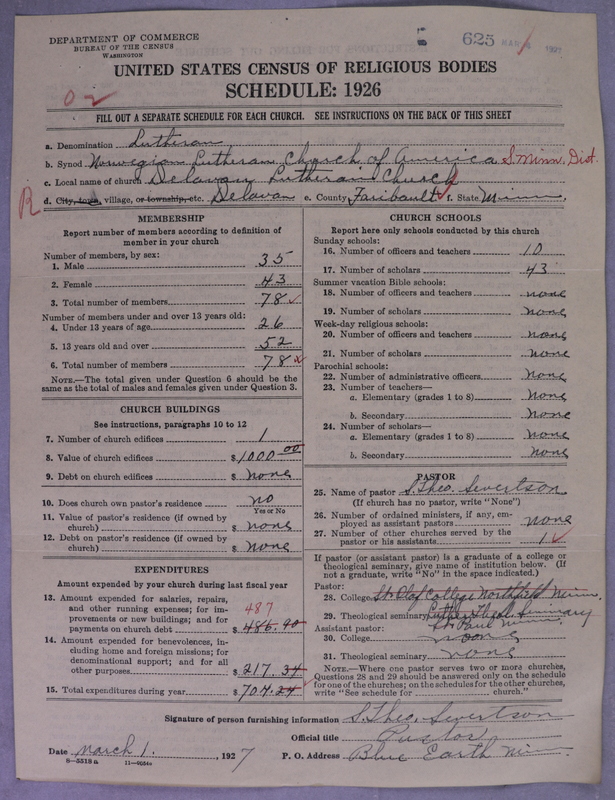 DEPARTMENT OF COMMERCE
BUREAU OF THE CENSUS
WASHINGTON
625
UNITED STATES CENSUS OF RELIGIOUS BODIES
SCHEDULE: 1926
FILL OUT A SEPARATE SCHEDULE FOR EACH CHURCH. SEE INSTRUCTIONS ON THE BACK OF THIS SHEET
a. Denomination Lutheran
b. Synod Norwegian Lutheran Church of America S. Minn. Dist.
c. Local name of church Delavan Lutheran Church
R d. City, town, village, or township, etc. Delavan e. County Faribault f. State Minn.
MEMBERSHIP
Report number of members according to definition of member in your church
Number of members, by sex:
1. Male 35
2. Female 43
3. Total number of members 78
Number of members under and over 13 years old:
4. Under 13 years of age 26
5. 13 years old and over 52
6. Total number of members 78
NOTE.—The total given under Question 6 should be the
same as the total of males and females given under Question 3.
CHURCH BUILDINGS
See instructions, paragraphs 10 to 12
7. Number of church edifices 1
8. Value of church edifices $ 1000.00
9. Debt on church edifices $ none
10. Does church own pastor's residence no
Yes or No
11. Value of pastor's residence (if owned by
church) $ none
12. Debt on pastor's residence (if owned by
church) $ none
EXPENDITURES
Amount expended by your church during last fiscal year
13. Amount expended for salaries, repairs,
and other running expenses; for im- 487
provements or new buildings; and for
payments on church debt $ 486.90
14. Amount expended for benevolences, in-
cluding home and foreign missions; for
denominational support; and for all
other purposes $ 217.34
15. Total expenditures during year $ 704.24
CHURCH SCHOOLS
Report here only schools conducted by this church
Sunday schools:
16. Number of officers and teachers 10
17. Number of scholars 43
Summer vacation Bible schools:
18. Number of officers and teachers none
19. Number of scholars none
Week-day religious schools:
20. Number of officers and teachers none
21. Number of scholars none
Parochial schools:
22. Number of administrative officers none
23. Number of teachers—
a. Elementary (grades 1 to 8) none
b. Secondary none
24. Number of scholars—
a. Elementary (grades 1 to 8) none
b. Secondary none
PASTOR
25. Name of pastor S. Theo. Severtson
(If church has no pastor, write "None")
26. Number of ordained ministers, if any, em-
ployed as assistant pastors none
27. Number of other churches served by the
pastor or his assistants 1
If pastor (or assistant pastor) is a graduate of a college or
theological seminary, give name of institution below. (If
not a graduate, write "No" in the space indicated.)
Pastor:
28. College St. Olaf College Northfield Minn.
29. Theological seminary Luther Theol. Seminary
St. Paul Minn.
Assistant pastor:
30. College none
31. Theological seminary none
NOTE.—Where one pastor serves two or more churches,
Questions 28 and 29 should be answered only on the schedule
for one of the churches; on the schedules for the other churches,
write "See schedule for church."
Signature of person furnishing information S. Theo. Severtson
Official title Pastor
Date March 1. 1927 P. O. Address Blue Earth Minn.
8—5318 a